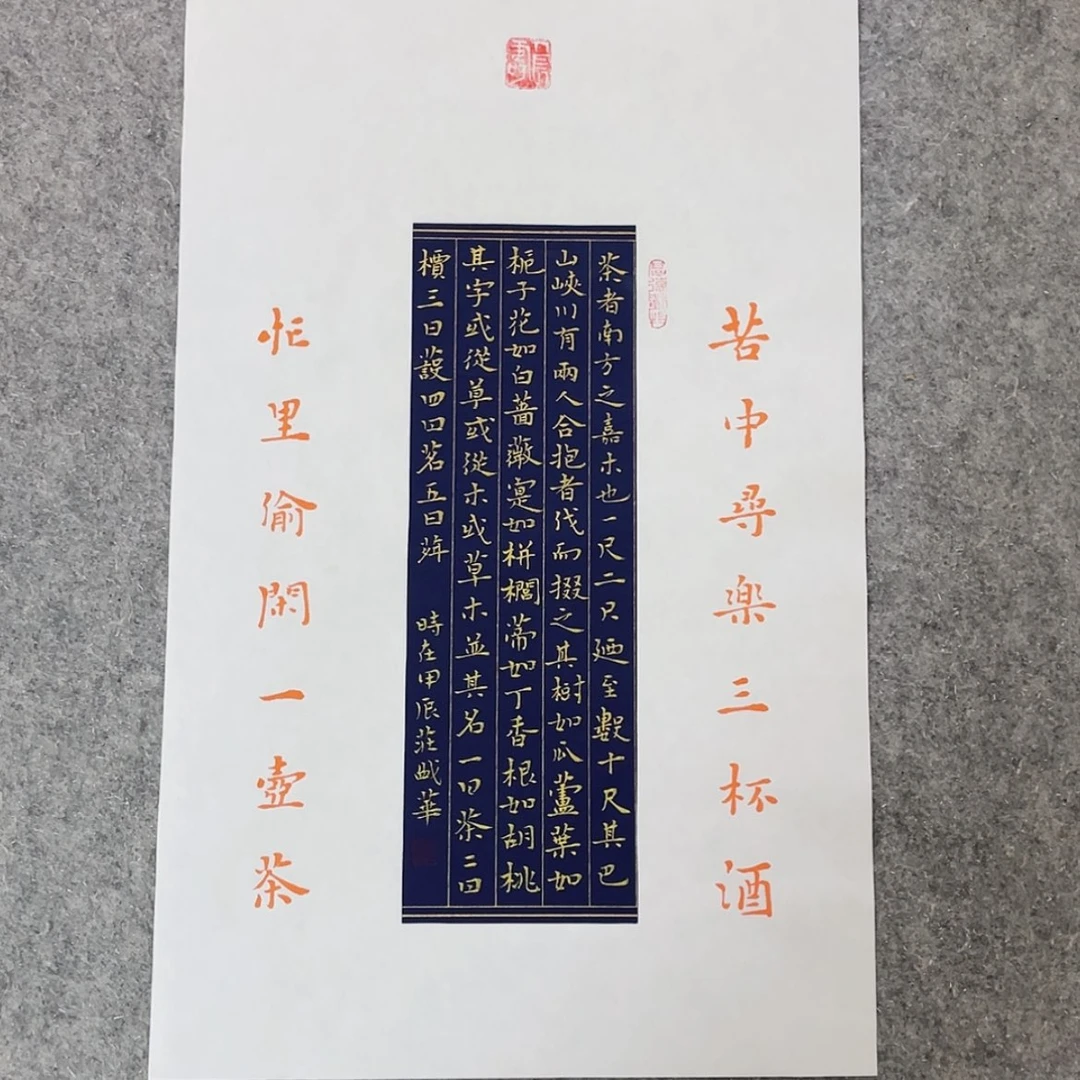 苦中尋楽三杯酒
茶者南方之嘉木也一尺二尺廼至數十尺其巴
山峽川有兩人合抱者伐而掇之其樹如瓜蘆葉如
梔子花如白薔薇寔如栟櫚蒂如丁香根如胡桃
其字或從草或從木或草木並其名一曰茶二曰
檟三曰蔎四曰茗五曰荈 時在甲辰莊華
忙里偷閑一壺茶